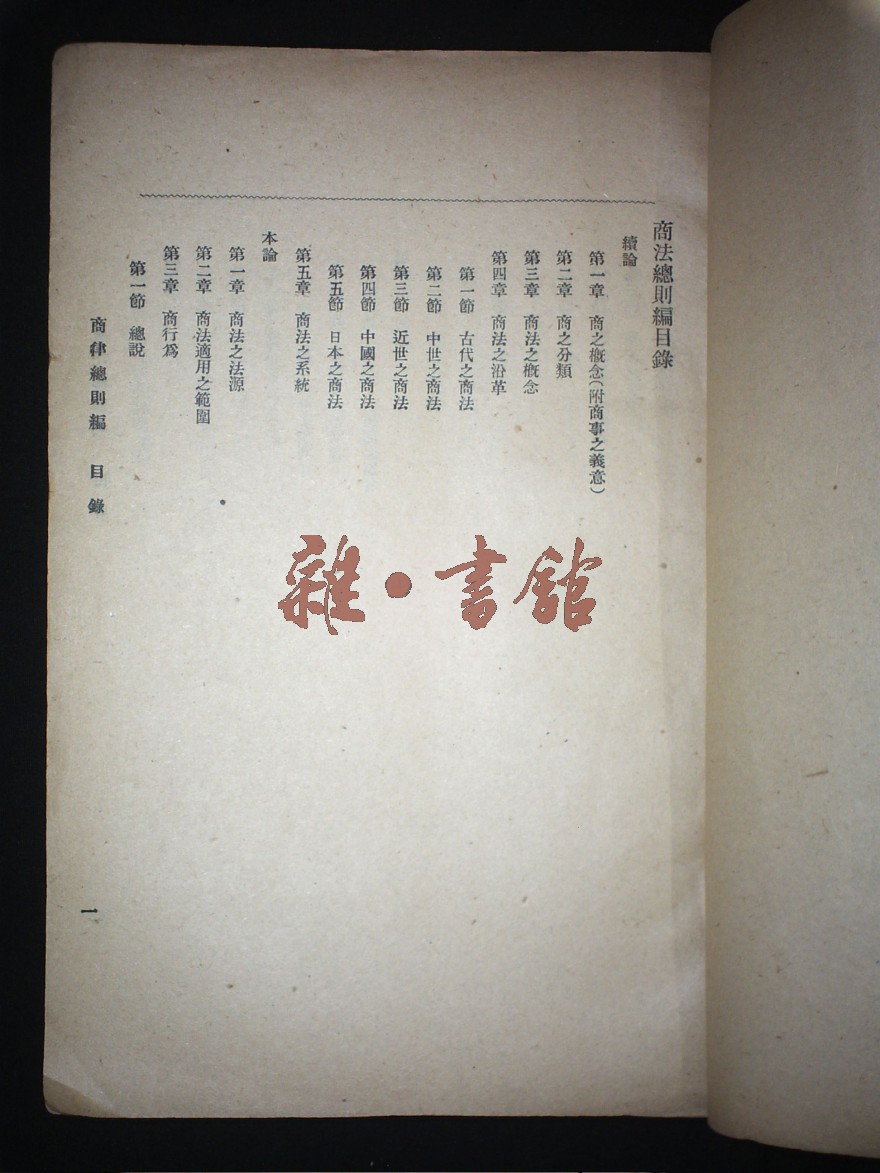 商法總則編目錄
續論
第一章 商之概念(附商事之義意)
第二章 商之分類
第三章 商法之概念
第四章 商法之沿革
第一節 古代之商法
第二節 中世之商法
第三節 近世之商法
第四節 中國之商法
第五節 日本之商法
第五章 商法之系統
本論
第一章 商法之法源
第二章 商法適用之範圍
第三章 商行爲
第一節 總說
商律總則編 目錄
一
雜·書館